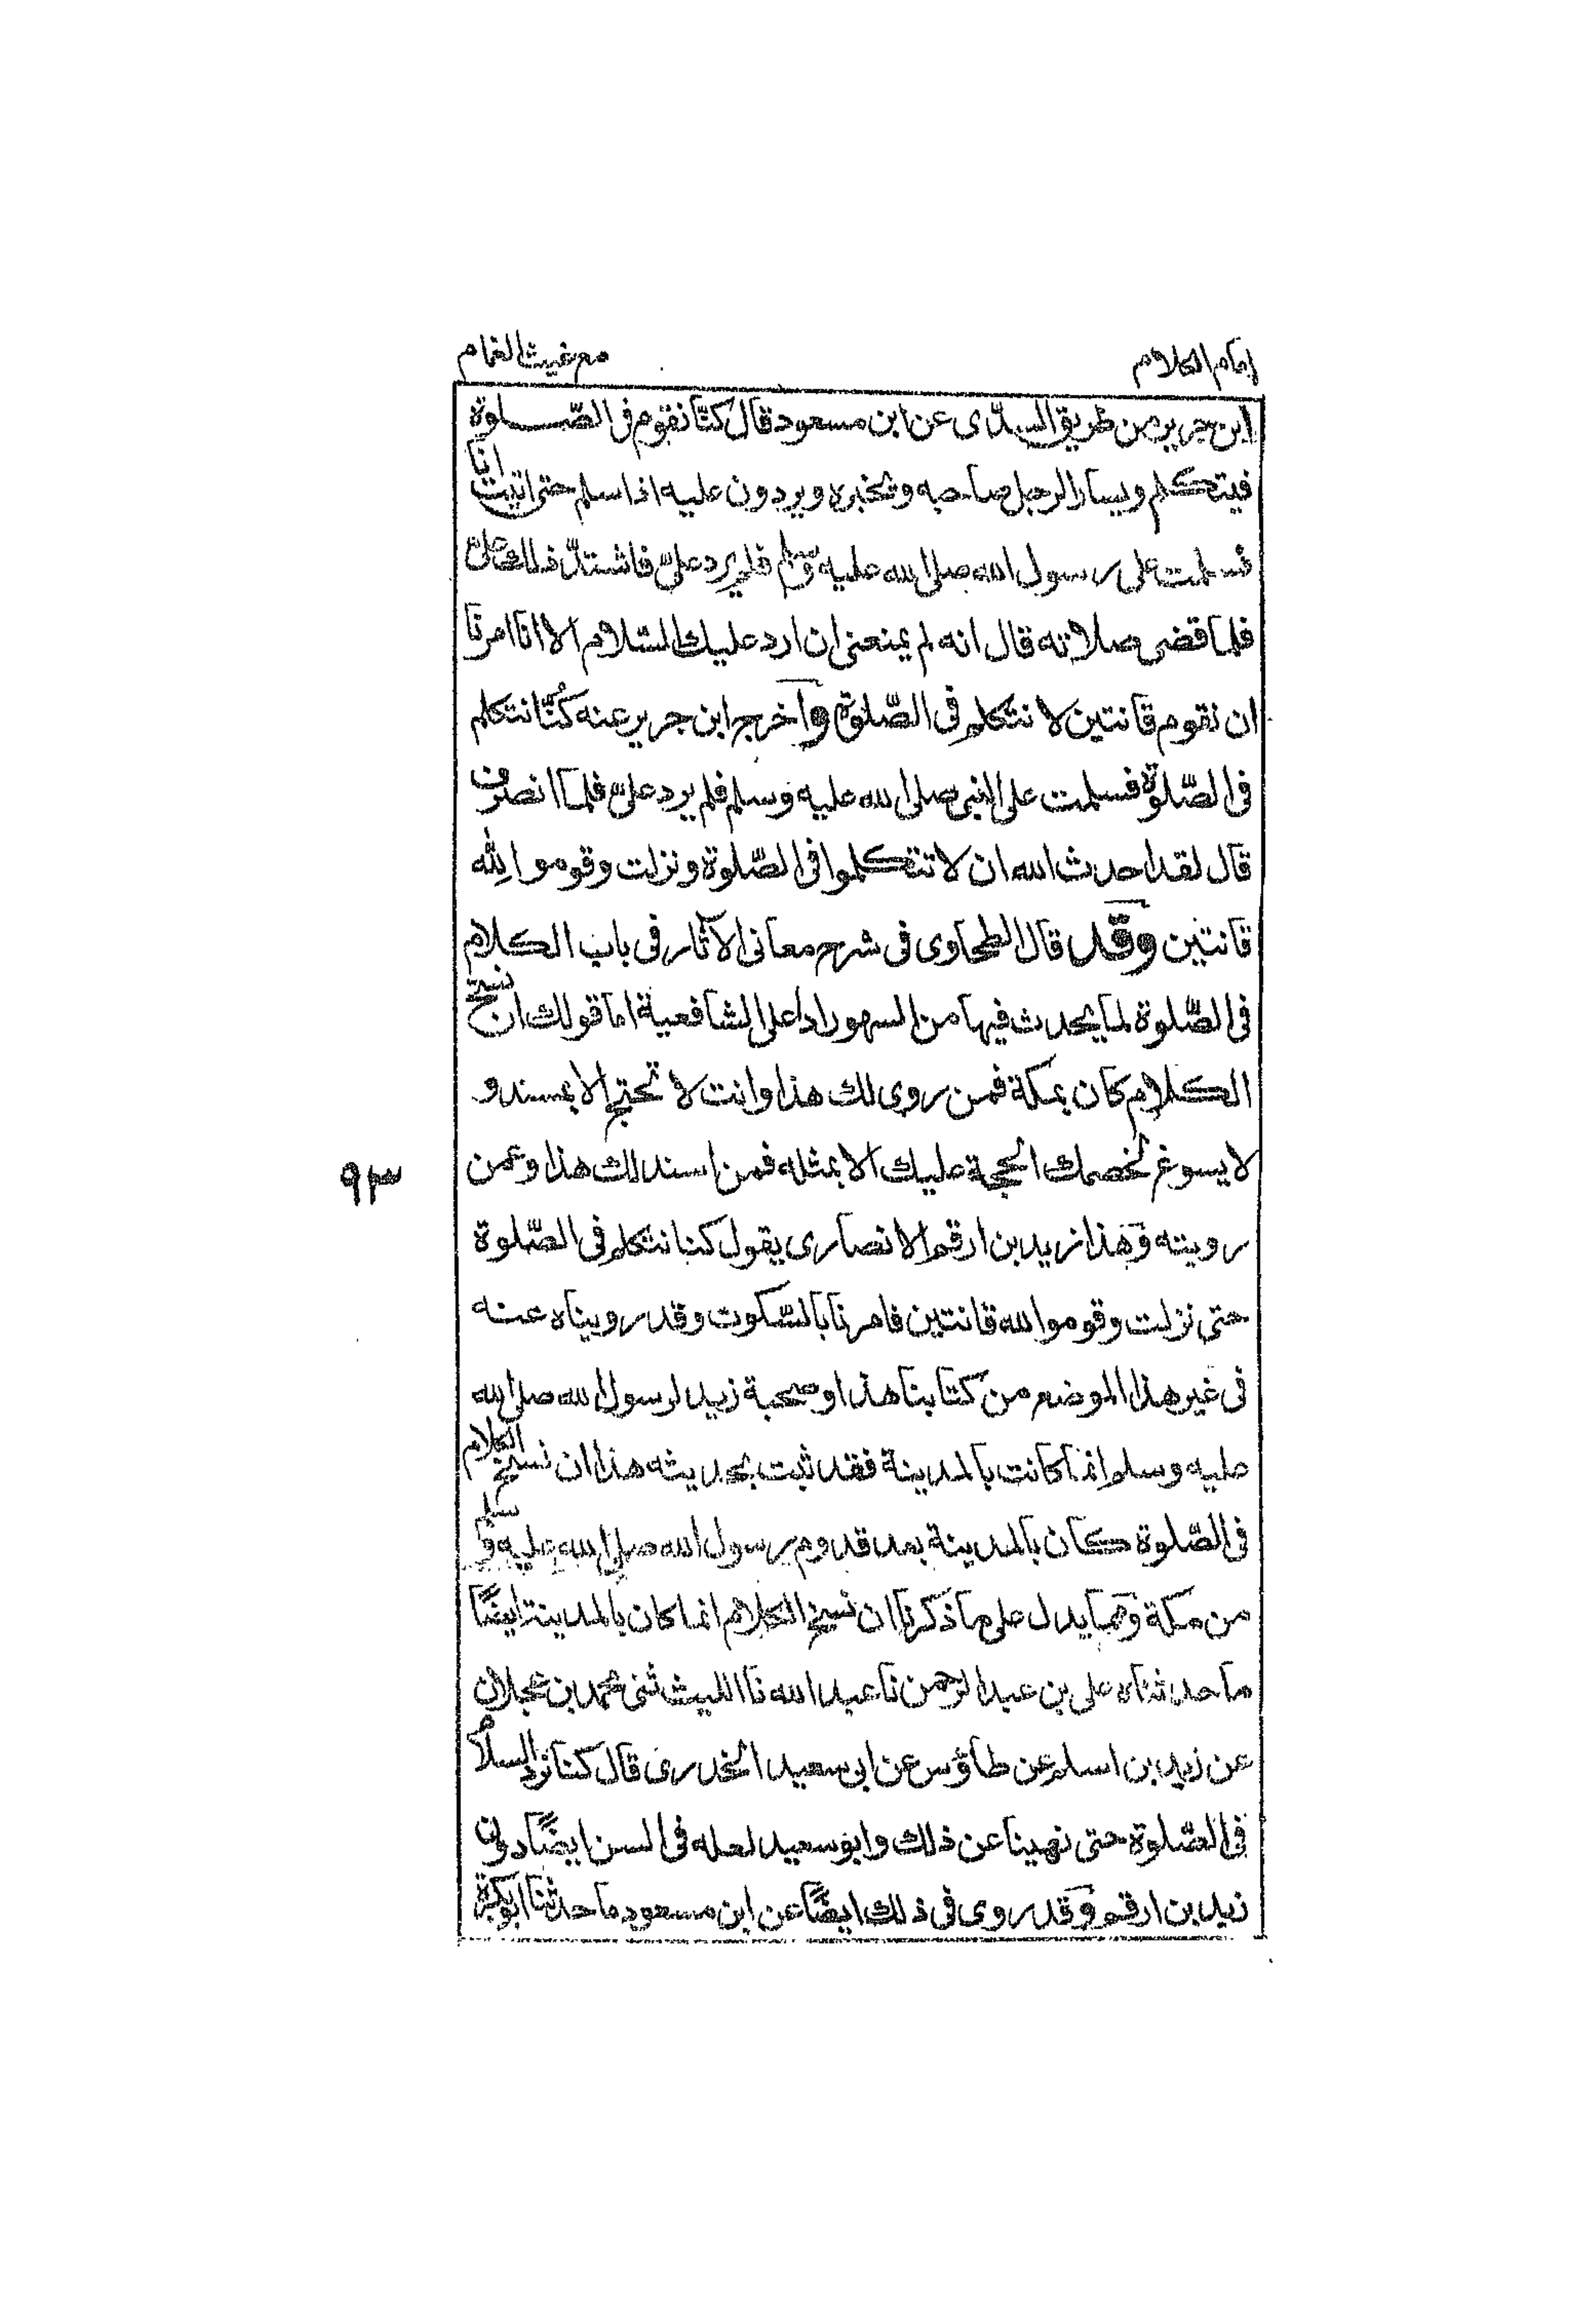 إمام الكلام
مع غيث الغمام
ابن جرير من طريق السدّى عن ابن مسعود قال كنّا نقوم فى الصّلوة
فيتكلم ويسار الرجل صاحبه ويخبره ويردون عليه اذا سلم حتى اتيت انا
فسلمت على رسول الله صلى الله عليه وسلم فلم يرد علىّ فاشتدّ ذلك علىّ
فلما قضى صلاته قال انه لم يمنعنى ان ارد عليك السّلام الا انا امرنا
ان نقوم قانتين لا نتكلم فى الصّلوة واخرج ابن جرير عنه كُنّا نتكلم
فى الصّلوة فسلمت على النبى صلى الله عليه وسلم فلم يرد علىّ فلما انصرف
قال لقد احدث الله ان لا تتكلموا فى الصّلوة ونزلت وقوموا لِلّه
قانتين وقد قال الطحاوى فى شرح معانى الآثار فى باب الكلام
فى الصّلوة لما يحدث فيها من السهو رادا على الشافعية اما قولك ان نسخ
الكلام كان بمكة فمن روى لك هذا وانت لا تحتج الا بمسند و
لا يسوغ لخصمك الحجة عليك الا بمثله فمن اسند لك هذا وعمن
رويته وهذا زيد بن ارقم الانصارى يقول كنا نتكلم فى الصّلوة
حتى نزلت وقوموا لله قانتين فامرنا بالسّكوت وقد رويناه عنه
فى غير هذا الموضع من كتابنا هذا وصحبة زيد لرسول الله صلى الله
عليه وسلم انما كانت بالمدينة فقد ثبت بحديثه هذا ان نسخ الكلام
فى الصّلوة كان بالمدينة بعد قدوم رسول الله صلى الله عليه وسلم
من مكة ومما يدل على ما ذكرنا ان نسخ الكلام انما كان بالمدينة ايضًا
ما حدثناه على بن عبد الرحمن نا عبد الله نا الليث ثنى محمد بن عجلان
عن زيد بن اسلم عن طاؤس عن ابى سعيد الخدرى قال كنا نرد السلام
فى الصّلوة حتى نهينا عن ذلك وابو سعيد لعله فى السن ايضًا دون
زيد بن ارقم وقد روى فى ذلك ايضًا عن ابن مسعود ما حدثنا ابو بكرة
٩٣